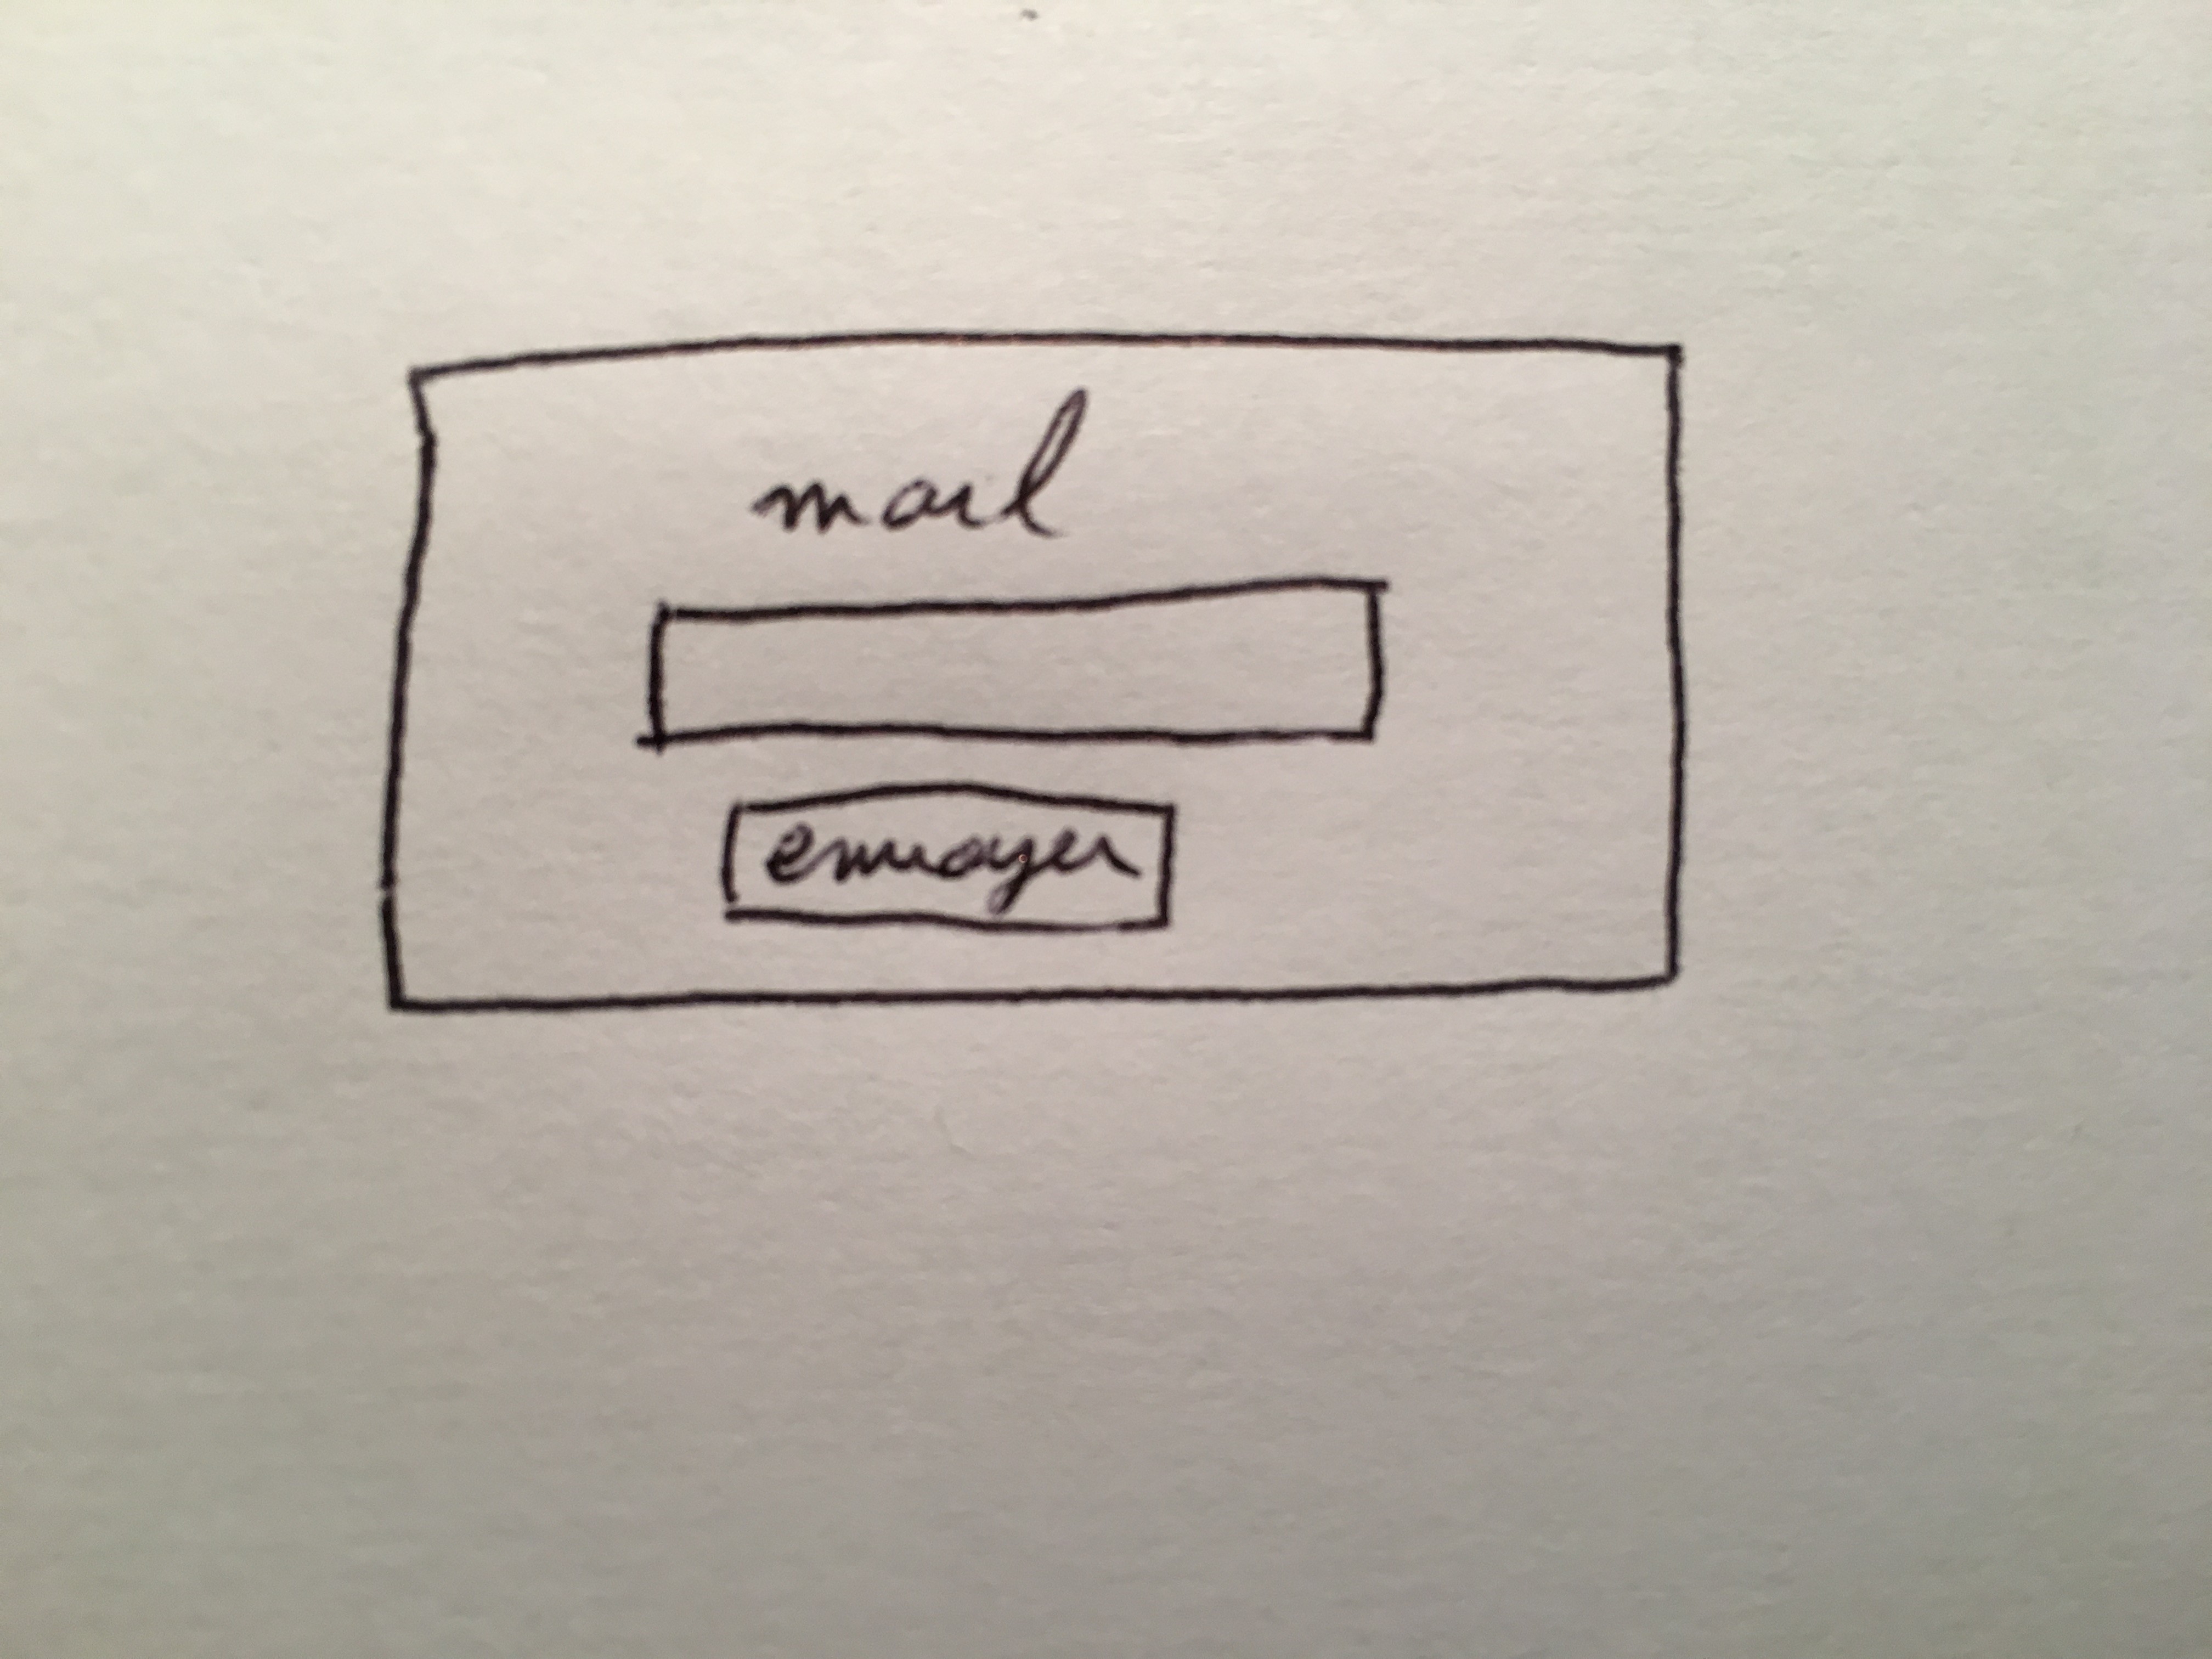 mail
envoyer